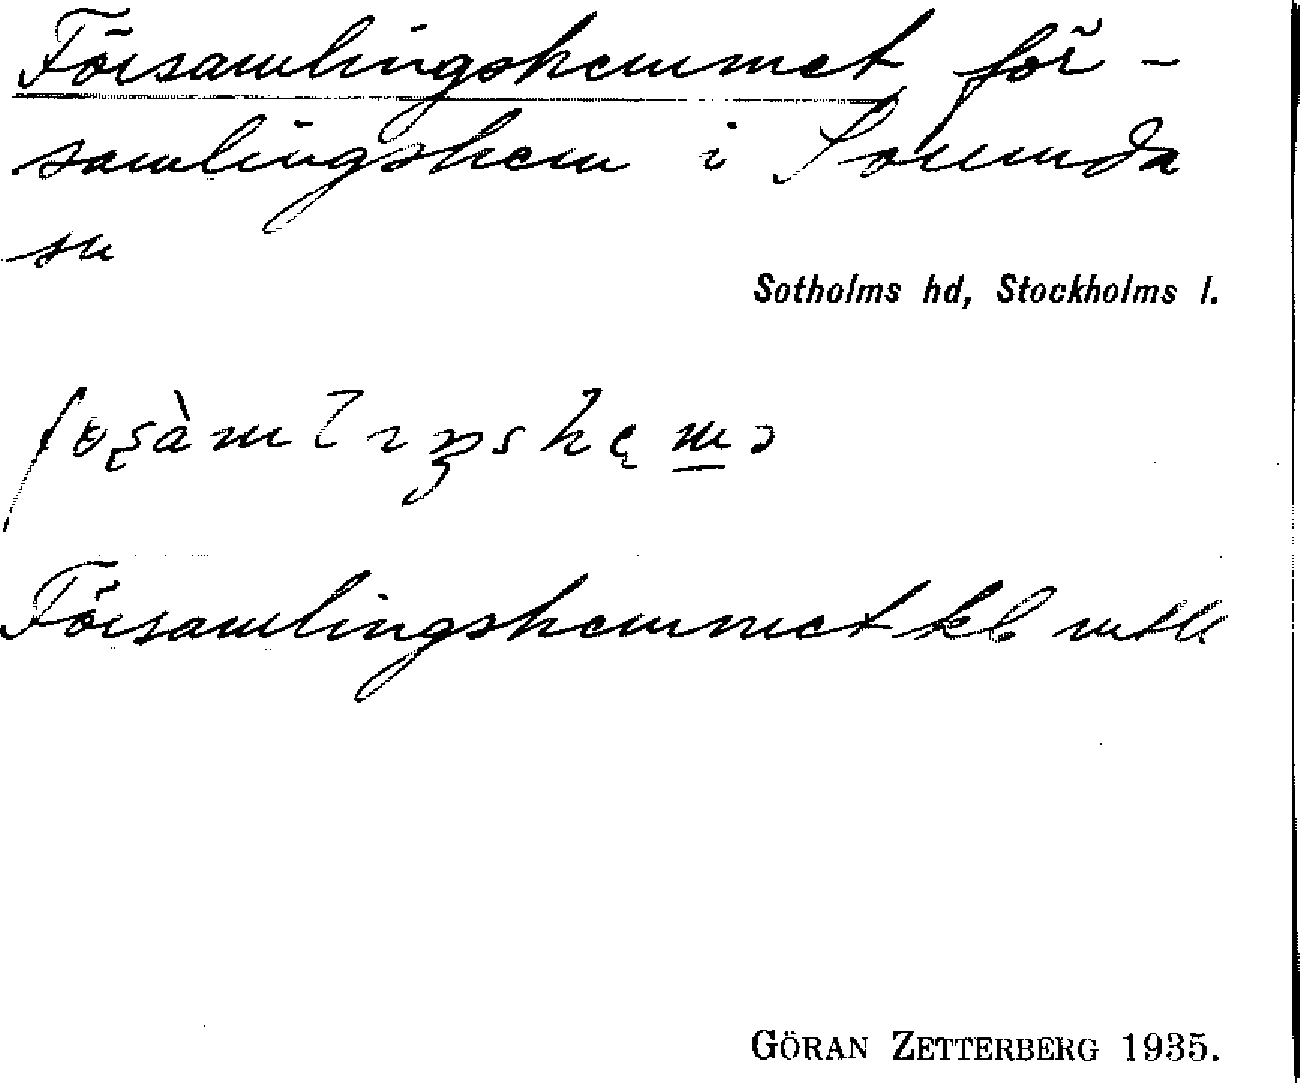 Församlingshemmet, för-
samlingshem i Sorunda
sn
Sotholms hd, Stockholms l.
Församlingshemmet kb mtl
GÖRAN ZETTERBERG 1935.